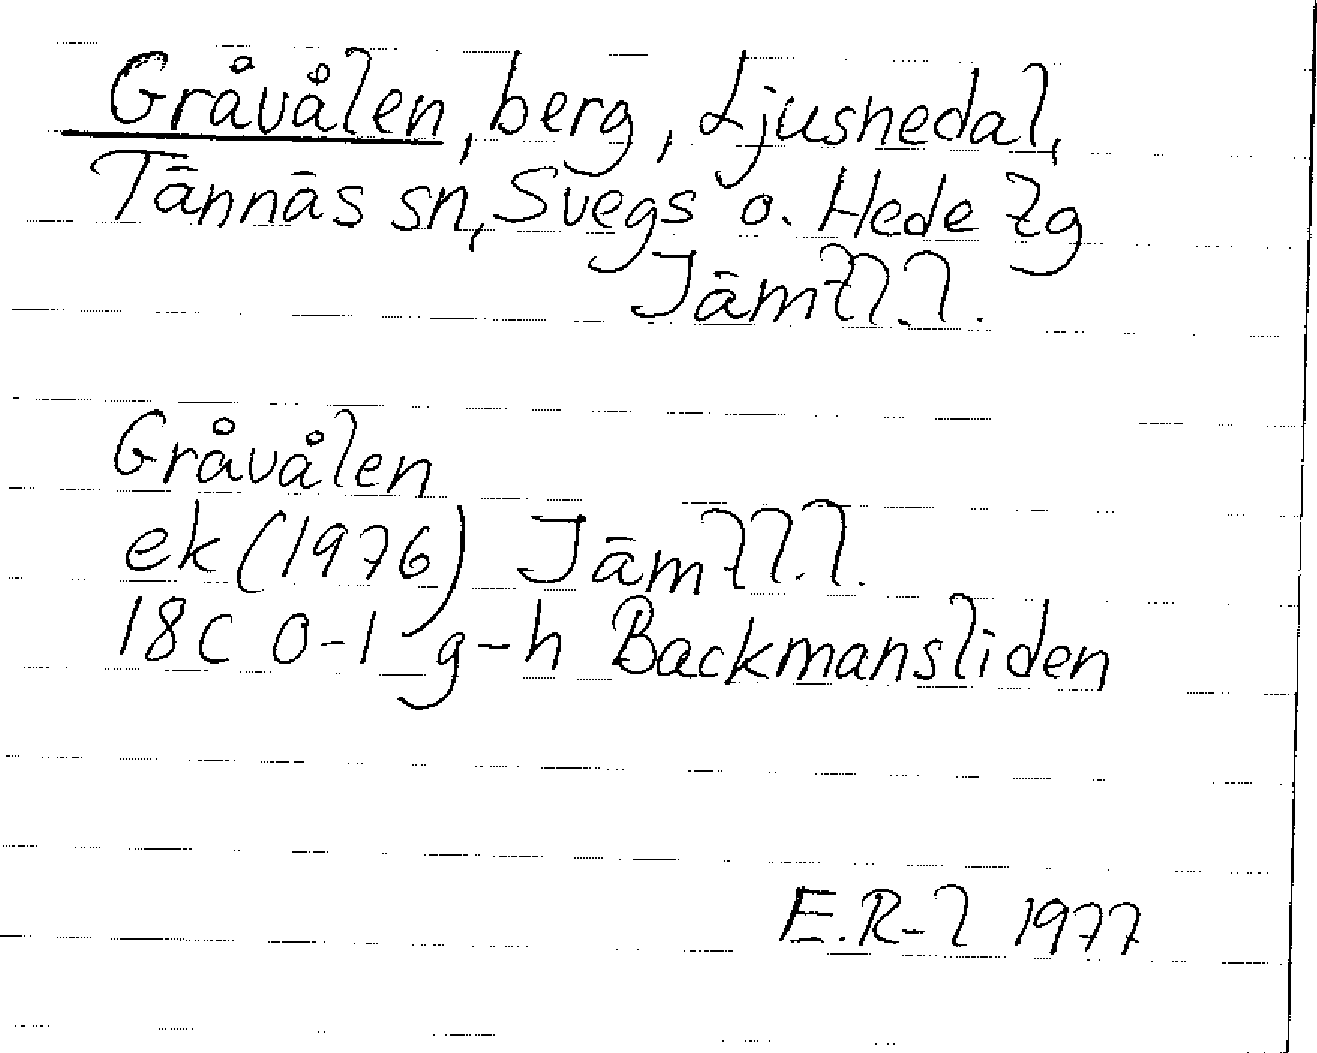 Gråvålen, berg, Ljusnedal,
Tännäs sn, Svegs o. Hede tg
Jämtl.l.
Gråvålen
ek (1976) Jämtl.l.
18C 0-1 g-h Backmansliden
E.R-l 1977